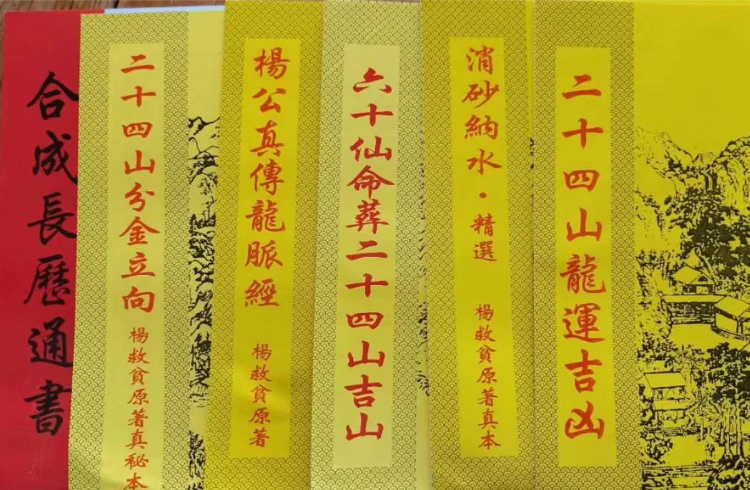 合成長歷通書
二十四山分金立向
楊救貧原著真秘本
楊公真傳龍脈經
楊救貧原著
六十仙命葬二十四山吉山
消砂納水·精選
楊救貧原著真本
二十四山龍運吉凶